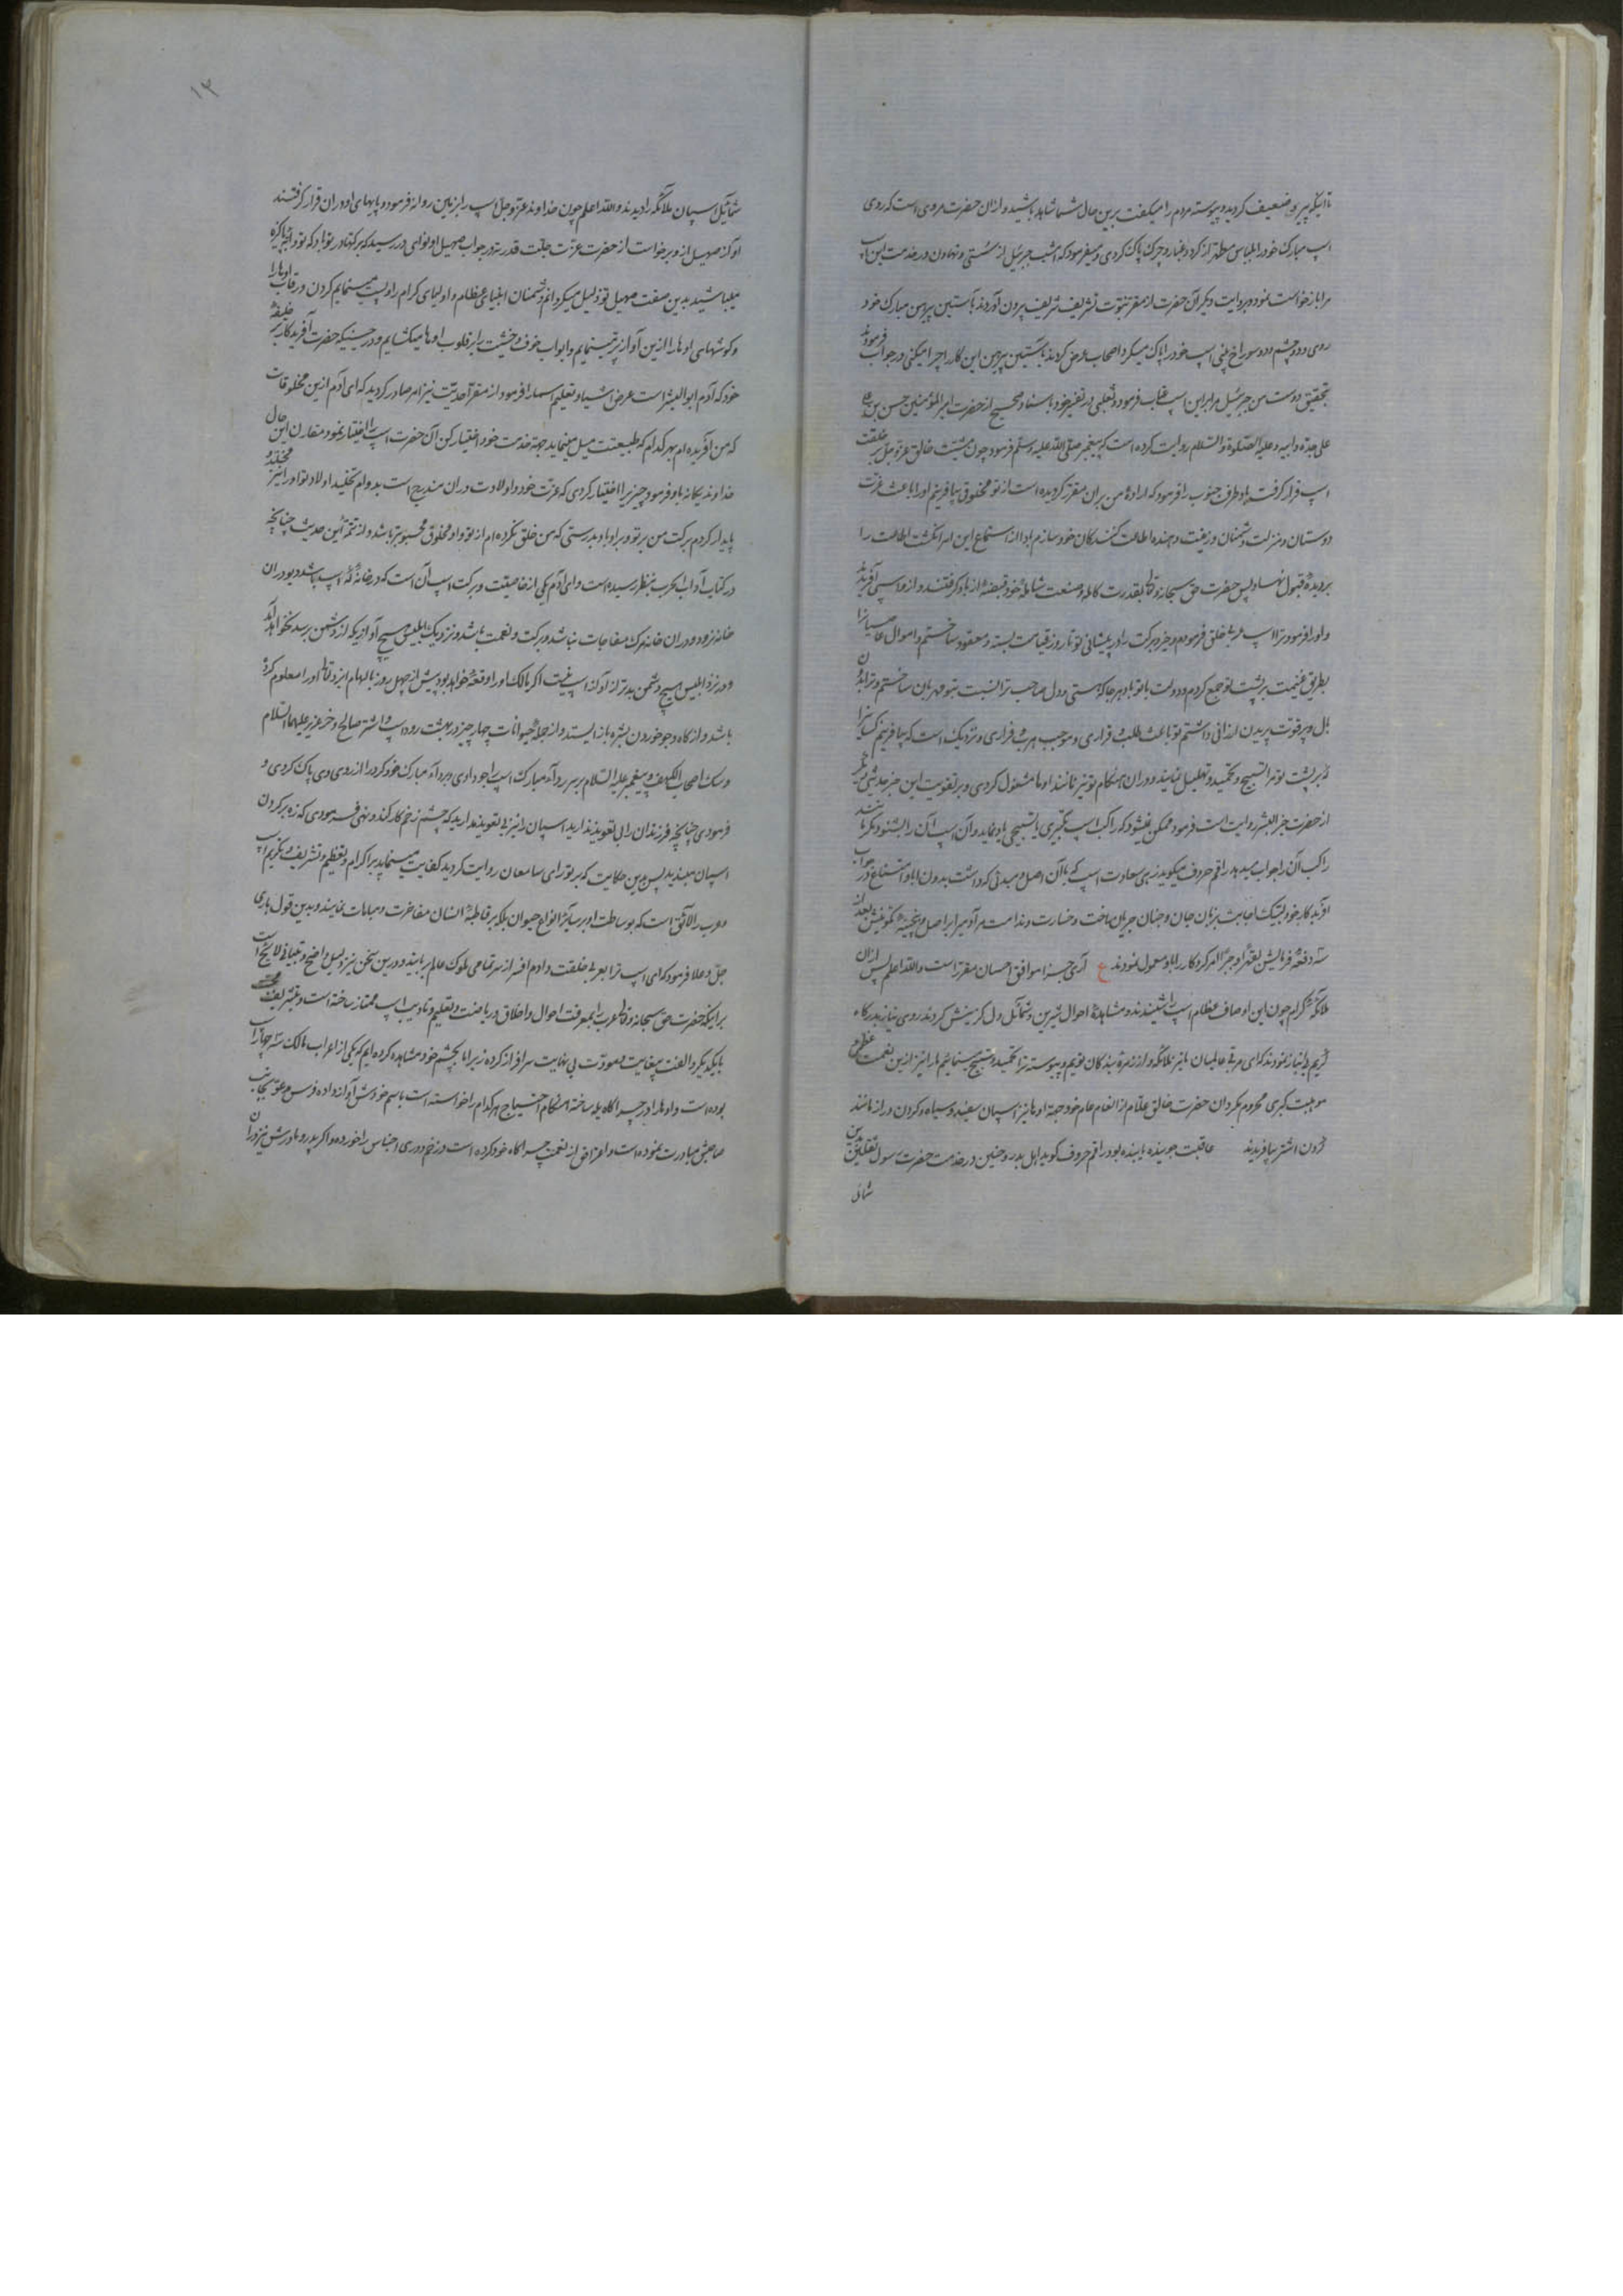 تا آنکه پیر و ضعیف کردید و پیوسته مردم را میکفت برین حال شما شاهد باشید و ازان حضرت مروی است که روی
اسپ مبارک خود را بلباس مطهر از کرد و غبار و چرک پاک کردی و میفرمود که امشب جبرئیل از سستی و تهاون در خدمت این اسپ
مرا بازخواست نمود و بروایت دیکر آن حضرت از مقر نبوت تشریف شریف بیرون آوردند بآستین پیرهن مبارک خود
روی و دو چشم و دو سوراخ بینی اسپ خود را پاک میکرد اصحاب عرض کردند بآستین پیرهن این کار را چرا میکنی در جواب فرمودند
بتحقیق دوست من جبرئیل مرا برین اسپ عتاب فرمود و ثعلبی در تفسیر خود باسناد صحیح از حضرت امیر المؤمنین حسن بن
علی جده و ابیه و علیه الصلوة والسلام روایت کرده است که پیغمبر صلی الله علیه وسلم فرمود چون مشیت خالق عز و جل بر خلقت
اسپ قرار کرفت باد طرف جنوب را فرمود که اراده من بران مقرر کردیده است از تو مخلوقی بیافرینم او را باعث عزت
دوستان و منزلت دشمنان و زینت دهنده اطاعت کنندکان خود سازم باد از استماع این امر انکشت اطاعت را
بر دیده قبول نهاد پس حضرت حق سبحانه وتعالی بقدرت کامله و صنعت شامله خود قبضه از باد کرفتند و از و اسپی آفریدند
و او را فرمود ترا اسپ خلق فرمودم و خیر و برکت را در پیشانی تو تا روز قیامت بسته و معقود ساختم و اموال
بطریق غنیمت بر پشت تو جمع کردم و دولت با تو باد هرجا که هستی و دل صاحب ترا نسبت بتو مهربان ساختم و ترا بدون
بال و پر قوت پریدن ارزانی داشتم تو باعث طلب و قراری و موجب هرب و فراری و نزدیک است که بیافرینم کسانیرا
که بر پشت تو مرا تسبیح و تحمید و تهلیل نمایند و دران هنکام تو نیز مانند اوها مشغول کردی و بر تقویت این خبر حدیثی دیکر
از حضرت خیر البشر روایت است فرمود ممکن نمیشود که راکب اسپ تکبیری یا تسبیحی یاد نماید و آن اسپ آن را نشنود مکر
راکب آن را جواب میدهد راقم حروف میکوید زهی سعادت اسپ که با آن اصل و مبدئی که داشت بدون ابا و امتناع در جواب
آفریدکار خود لبیک اجابت بزبان جان و جنان جریان ساخت و خسارت و ندامت مر آدمی را بر اصل و
سه دفعه فرمایش بقهر و جبر امر کردکار را بلا و معمول نمودند ع آری جزا موافق احسان مقرر است والله اعلم پس ازان
ملائکه کرام چون این اوصاف عظام اسپ را شنیدند و مشاهده احوال شیرین و شمائل دل کزینش کردند روی نیاز بدرکاه
کریم بی نیاز نمودند که ای مربی عالمیان ما نیز ملائکه و از زمره بندکان توییم و پیوسته ترا تحمید و تسبیح مینماییم ما را نیز ازین نعمت عظمی و
موهبت کبری محروم مکردان حضرت خالق علام از انعام عام خود جهة اوها نیز اسپان سفید و سیاه و کردن دراز مانند
کردن اشتر بیافریدند عاقبت جوینده یابنده بود راقم حروف کوید اهل بدر و حنین در خدمت حضرت رسول ثقلین بدین
شمائل
۱۳
شمائل اسپان ملائکه را دیدند والله اعلم چون خداوند عز و جل اسپ را بر زمین روانه فرمود و پایهای او دران قرار کرفتند
آواز صهیل از و برخواست از حضرت عزت جلت قدرته در جواب صهیل او ندای در رسید که برکتها در تو باد که تو
میباشید بدین صفت صهیل تو ذلیل میکردانم دشمنان انبیای عظام و اولیای کرام را و پست مینمایم کردن و رقاب اوها را
و کوشهای اوها را ازین آواز پر مینمایم و ابواب خوف و خشیت را بر قلوب اوها میکشایم و در حینیکه حضرت آفریدکار بر خلیفه
خود که آدم ابو البشر است عرض اشیا و تعلیم اسما را فرمود از مقر احدیت نیز امر صادر کردید که ای آدم ازین مخلوقات
که من آفریده ام بهر کدام که طبیعتت میل مینماید جهة خدمت خود اختیار کن آن حضرت اسپ را اختیار نمود مقارن این حال
خداوند یکانه باو فرمود چیزیرا اختیار کردی که عزت خود و اولادت دران مندرج است بدوام تخلید اولاد تو او را نیز مخلد و
پایدار کردم برکت من بر تو و بر او باد بدرستی که من خلق نکرده ام از تو و او مخلوق محبوبتر باشد و از تتمه این حدیث چنانچه
در کتاب آداب الحرب بنظر رسیده است و ای آدم یکی از خاصیت و برکت اسپ آن است که در خانه که اسپ باشد دیو دران
خانه نرود و دران خانه مرک مفاجات نباشد و برکت و نعمت باشد و نزدیک ابلیس هیچ آوازیکه از دشمن برسد نخواهد
و در نزد ابلیس هیچ دشمن بدتر از آواز اسپ نیست اکر مالک او را واقعه خواهد بود پیش از چهل روز بالهام ایزد تعالی او را معلوم کردد
باشد و از کاه و جو خوردن بشره باز ایستد و از جمله حیوانات چهار چیز در بهشت رود اسپ و اشتر صالح و خر عزیر علیهما السلام
و سک اصحاب الکهف و پیغمبر علیه السلام بر سر رداء مبارک اسپ را جو دادی و برداء مبارک خود کرد را از روی وی پاک کردی و
فرمودی چنانچه فرزندان را بی تعویذ ندارید اسپان را نیز بی تعویذ مدارید که چشم زخم کار کند و نهی فرمودی که زه بر کردن
اسپان مبندید پس بدین حکایت که بر تو رای سامعان روایت کردید کفایت مینماید بر اکرام و تعظیم و تشریف و تکریم اسپ
و عرب را لائق است که بوساطت او بر سائر انواع حیوان بلکه بر قاطبه انسان مفاخرت و مباهات نمایند و بدین قول باری
جل و علا فرمود که ای اسپ ترا بعربی خلقت دادم افسر از سر تمامی ملوک عالم ربایند و درین سخن نیز دلیل واضح و تبیانی لائح است
بر اینکه حضرت حق سبحانه وتعالی عرب را بمعرفت احوال و اخلاق در ریاضت و تعلیم و تادیب اسپ ممتاز ساخته است و
بایکدیکر و الفت بیغایت و مودت بی نهایت سرافراز کرده زیرا ما بچشم خود مشاهده کرده ایم که یکی از اعراب مالک سه چهار اسپ
بوده است و اوها را در چراکاه یله ساخته هنکام احتیاج هر کدام را خواسته است باسم خودش آواز داده و فرس مدعو بجانب
صاحبش مبادرت نموده است و اعراض از نعمت چراکاه خود کرده است و زخم دوری اجناس را خورده و اکر پدر و مادرش نیز دران